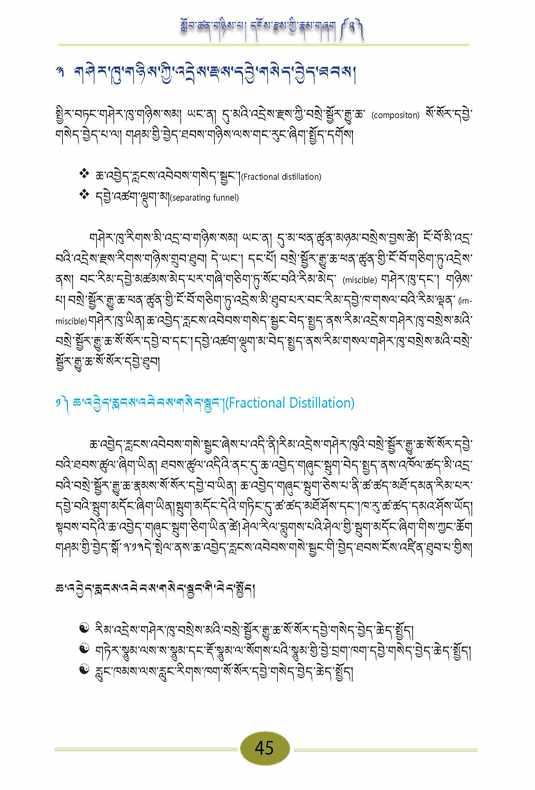 སློབ་ཚན་གཉིས་པ། དངོས་རྫས་ཀྱི་རྣམ་གཞག (༢)
༣ གཤེར་ཁུ་གཉིས་ཀྱི་འདྲེས་རྫས་དབྱེ་གསེད་བྱེད་ཐབས།
སྤྱིར་བཏང་གཤེར་ཁུ་གཉིས་སམ། ཡང་ན། དུ་མའི་འདྲེས་རྫས་ཀྱི་བསྲེ་སྦྱོར་རྒྱུ་ཆ་ (compositon) སོ་སོར་དབྱེ་
གསེད་བྱེད་པ་ལ། གཤམ་གྱི་བྱེད་ཐབས་གཉིས་ལས་གང་རུང་ཞིག་སྤྱོད་དགོས།
❖ ཆ་འབྱེད་རླངས་འབེབས་གསེད་སྦྱང་།(Fractional distillation)
❖ དབྱེ་འཚག་ལྡུག་མ།(separating funnel)
གཤེར་ཁུ་རིགས་མི་འདྲ་བ་གཉིས་སམ། ཡང་ན། དུ་མ་ཕན་ཚུན་མཉམ་བསྲེས་བྱས་ཚེ། ངོ་བོ་མི་འདྲ་
བའི་འདྲེས་རྫས་རིགས་གཉིས་གྲུབ་ཐུབ། དེ་ཡང་། དང་པོ། བསྲེ་སྦྱོར་རྒྱུ་ཆ་ཕན་ཚུན་གྱི་ངོ་བོ་གཅིག་ཏུ་འདྲེས་
ནས། བང་རིམ་དབྱེ་མཚམས་མེད་པར་གཞི་གཅིག་ཏུ་སོང་བའི་རིམ་མེད་ (miscible) གཤེར་ཁུ་དང་། གཉིས་
པ། བསྲེ་སྦྱོར་རྒྱུ་ཆ་ཕན་ཚུན་གྱི་ངོ་བོ་གཅིག་ཏུ་འདྲེས་མི་ཐུབ་པར་བང་རིམ་དབྱེ་ཁ་གསལ་བའི་རིམ་ལྡན་ (im-
miscible)གཤེར་ཁུ་ཡིན། ཆ་འབྱེད་རླངས་འབེབས་གསེད་སྦྱང་བེད་སྤྱད་ནས་རིམ་འདྲེས་གཤེར་ཁུ་བསྲེས་མའི་
བསྲེ་སྦྱོར་རྒྱུ་ཆ་སོ་སོར་དབྱེ་བ་དང་། དབྱེ་འཚག་ལྡུག་མ་བེད་སྤྱད་ནས་རིམ་གསལ་གཤེར་ཁུ་བསྲེས་མའི་བསྲེ་
སྦྱོར་རྒྱུ་ཆ་སོ་སོར་དབྱེ་ཐུབ།
༡) ཆ་འབྱེད་རླངས་འབེབས་གསེད་སྦྱང་།(Fractional Distillation)
ཆ་འབྱེད་རླངས་འབེབས་གསེ་སྦྱང་ཞེས་པ་འདི་ནི། རིམ་འདྲེས་གཤེར་ཁུའི་བསྲེ་སྦྱོར་རྒྱུ་ཆ་སོ་སོར་དབྱེ་
བའི་ཐབས་ཚུལ་ཞིག་ཡིན། ཐབས་ཚུལ་འདིའི་ནང་དུ་ཆ་འབྱེད་གཞུང་སྦུག་བེད་སྤྱད་ནས་འཁོལ་ཚད་མི་འདྲ་
བའི་བསྲེ་སྦྱོར་རྒྱུ་ཆ་རྣམས་སོ་སོར་དབྱེ་བ་ཡིན། ཆ་འབྱེད་གཞུང་སྦུག་ཅེས་པ་ནི་ཚ་ཚད་མཐོ་དམན་རིམ་པར་
དབྱེ་བའི་སྦུག་མདོང་ཞིག་ཡིན། སྦུག་མདོང་དེའི་གཏིང་དུ་ཚ་ཚད་མཐོ་ཤོས་དང་། ཁ་རུ་ཚ་ཚད་དམའ་ཤོས་ཡོད།
སྟབས་བདེའི་ཆ་འབྱེད་གཞུང་སྦུག་ཅིག་ཡིན་ཚེ། ཤེལ་རིལ་བླུགས་པའི་ཤེལ་གྱི་སྦུག་མདོང་ཞིག་གིས་ཀྱང་ཆོག
གཤམ་གྱི་བྱེད་སྒོ་ ༣.༡༣དེ་སྤེལ་ནས་ཆ་འབྱེད་རླངས་འབེབས་གསེ་སྦྱང་གི་བྱེད་ཐབས་ངོས་འཛིན་ཐུབ་པ་གྱིས།
ཆ་འབྱེད་རླངས་འབེབས་གསེད་སྦྱང་གི་བེད་སྤྱོད།
☯ རིམ་འདྲེས་གཤེར་ཁུ་བསྲེས་མའི་བསྲེ་སྦྱོར་རྒྱུ་ཆ་སོ་སོར་དབྱེ་གསེད་བྱེད་ཆེད་སྤྱོད།
☯ གཏེར་སྣུམ་ལས་ས་སྣུམ་དང་རྡོ་སྣུམ་ལ་སོགས་པའི་སྣུམ་གྱི་བྱེ་བྲག་ཁག་དབྱེ་གསེད་བྱེད་ཆེད་སྤྱོད།
☯ རླུང་ཁམས་ལས་རླུང་རིགས་ཁག་སོ་སོར་དབྱེ་གསེད་བྱེད་ཆེད་སྤྱོད།
45